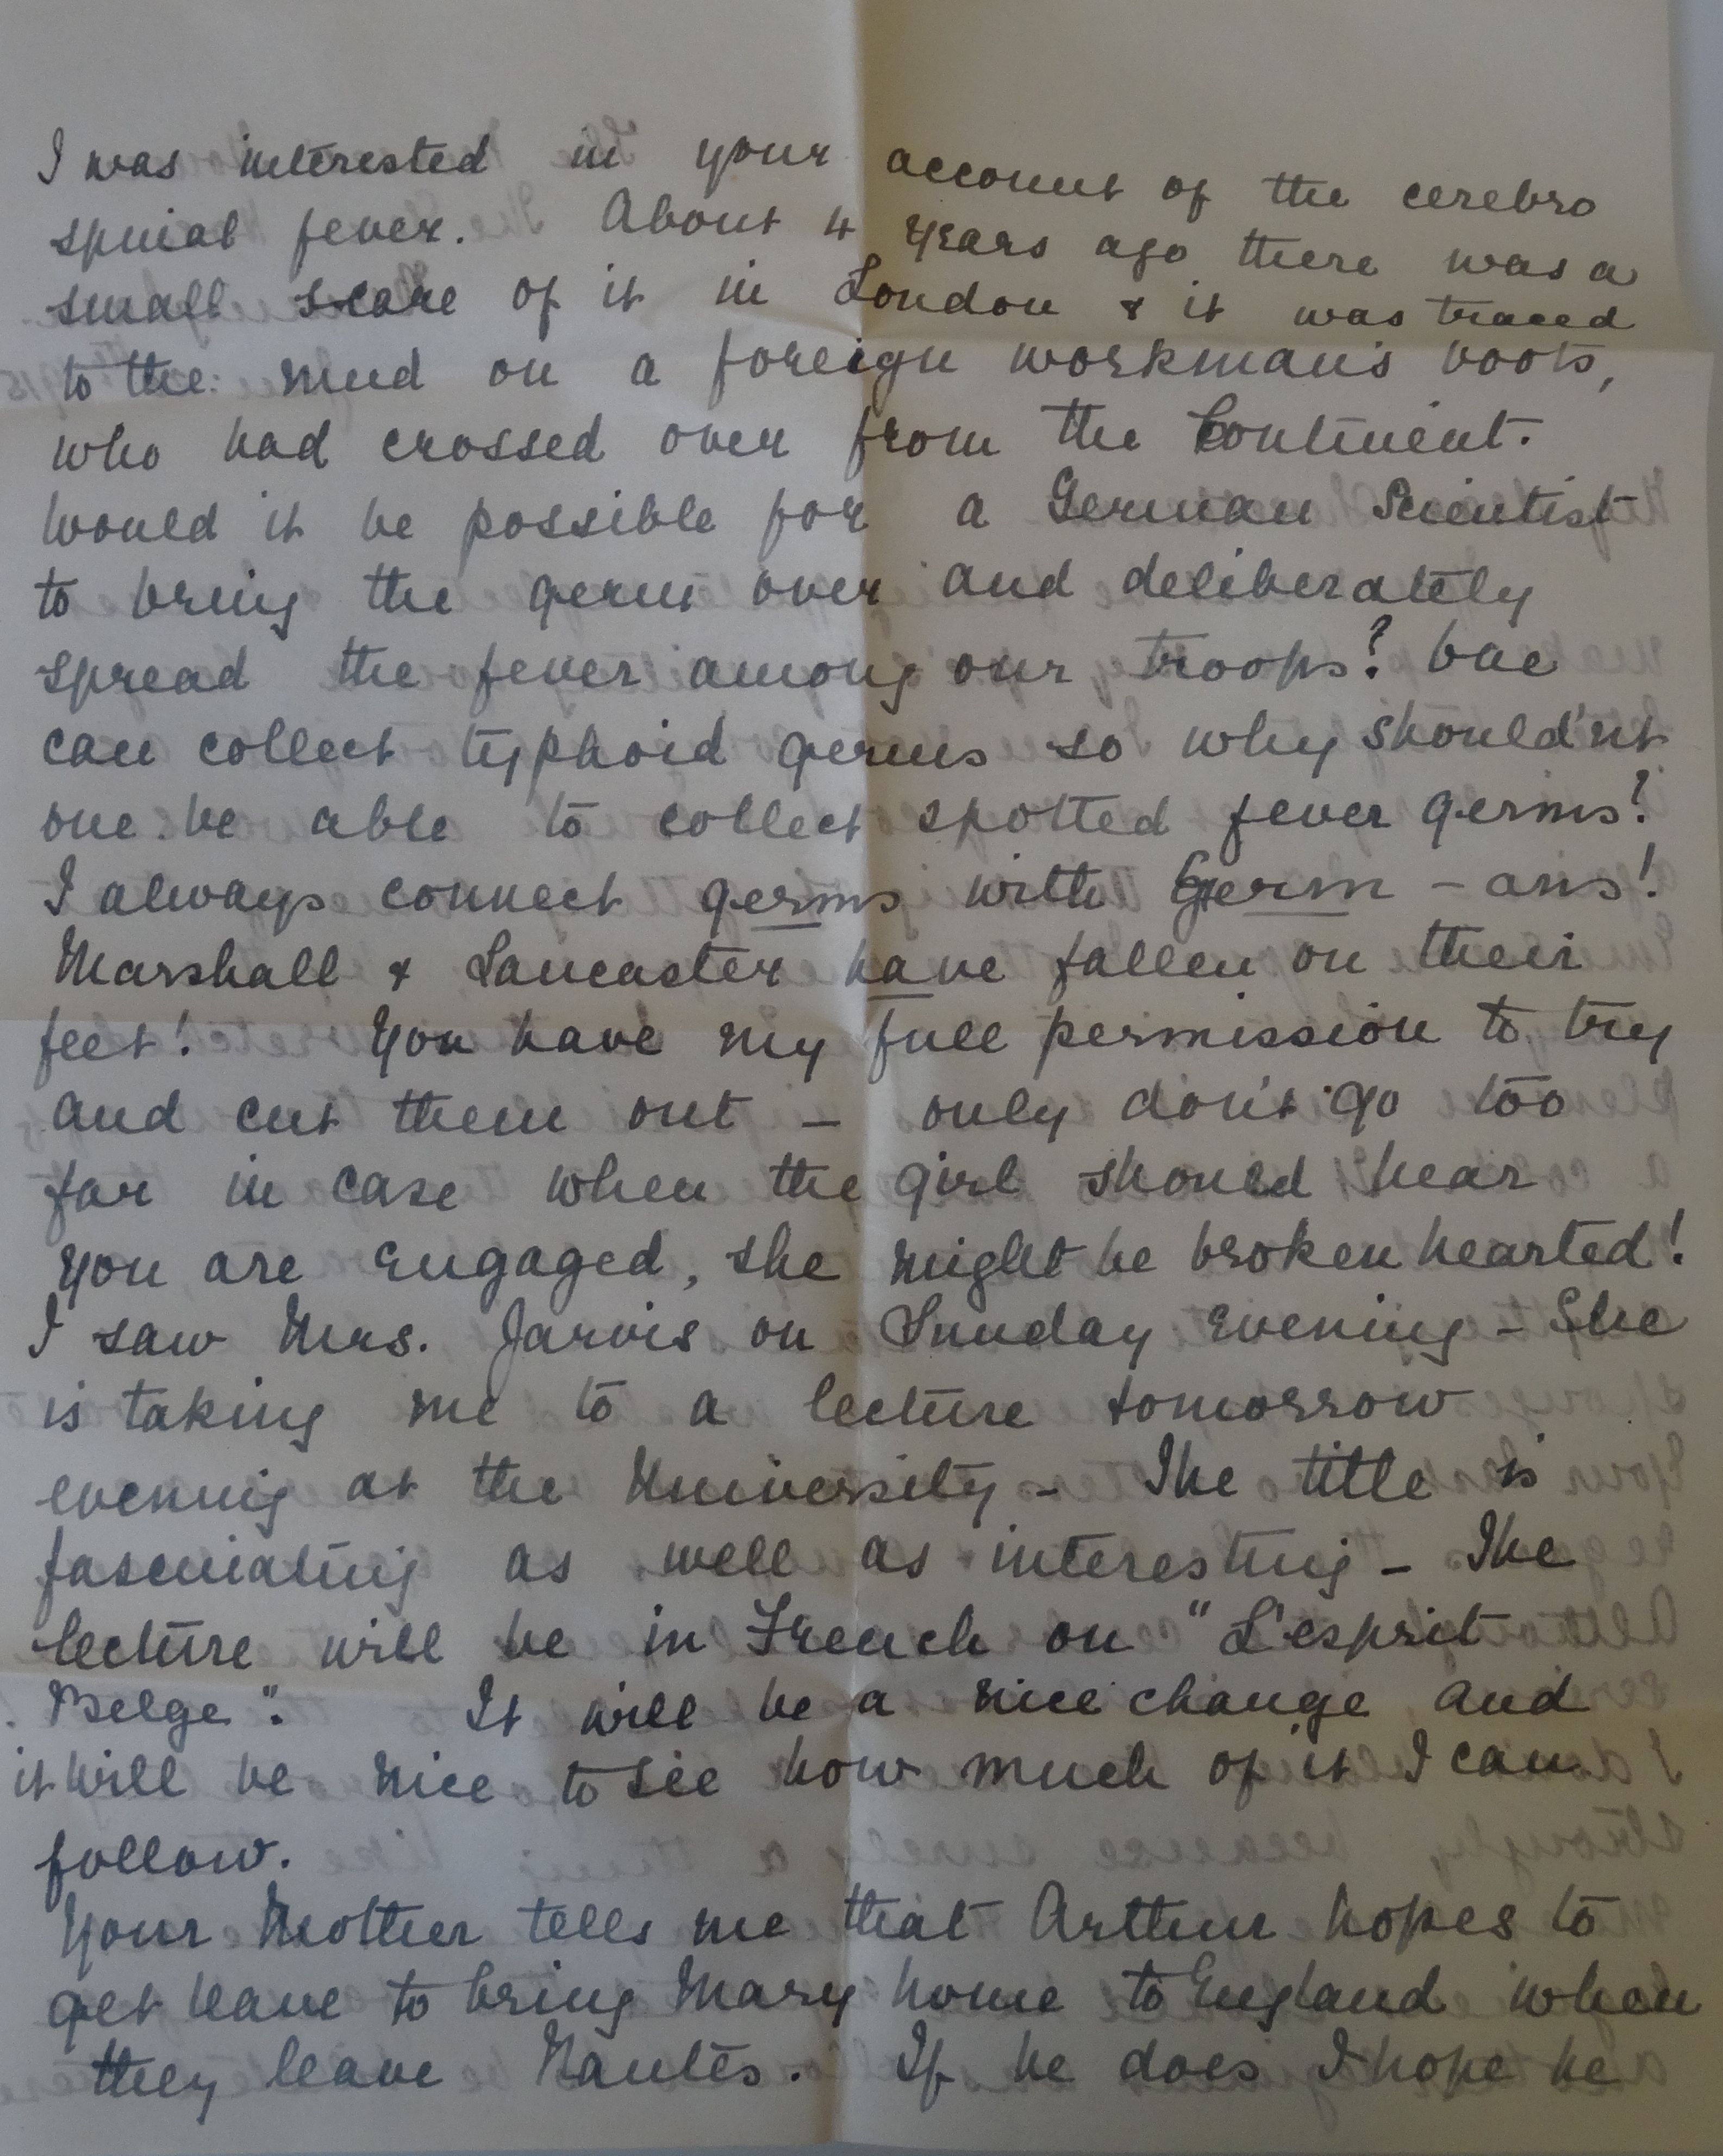 I was interested in your account of the cerebro
spinal fever. About 4 years ago there was a
small scare of it in London & it was traced
to the mud on a foreign workman's boots,
who had crossed over from the Continent.
Would it be possible for a German Scientist
to bring the germ over and deliberately
spread the fever among our troops? One
can collect typhoid germs so why should'nt
one be able to collect spotted fever germs?
I always connect germs with Germ - ans!
Marshall & Lancaster have fallen on their
feet! You have my full permission to try
and cut them out - only don't go too
far in case when the girl should hear
you are engaged, she might be broken hearted!
I saw Mrs. Jarvis on Sunday evening - She
is taking me to a lecture tomorrow
evening at the University - The title is
fascinating as well as interesting - The
lecture will be in French on "L'esprit
Belge". It will be a nice change and
it will be nice to see how much of it I can
follow.
Your Mother tells me that Arthur hopes to
get leave to bring Mary home to England when
they leave Nantes. If he does I hope he